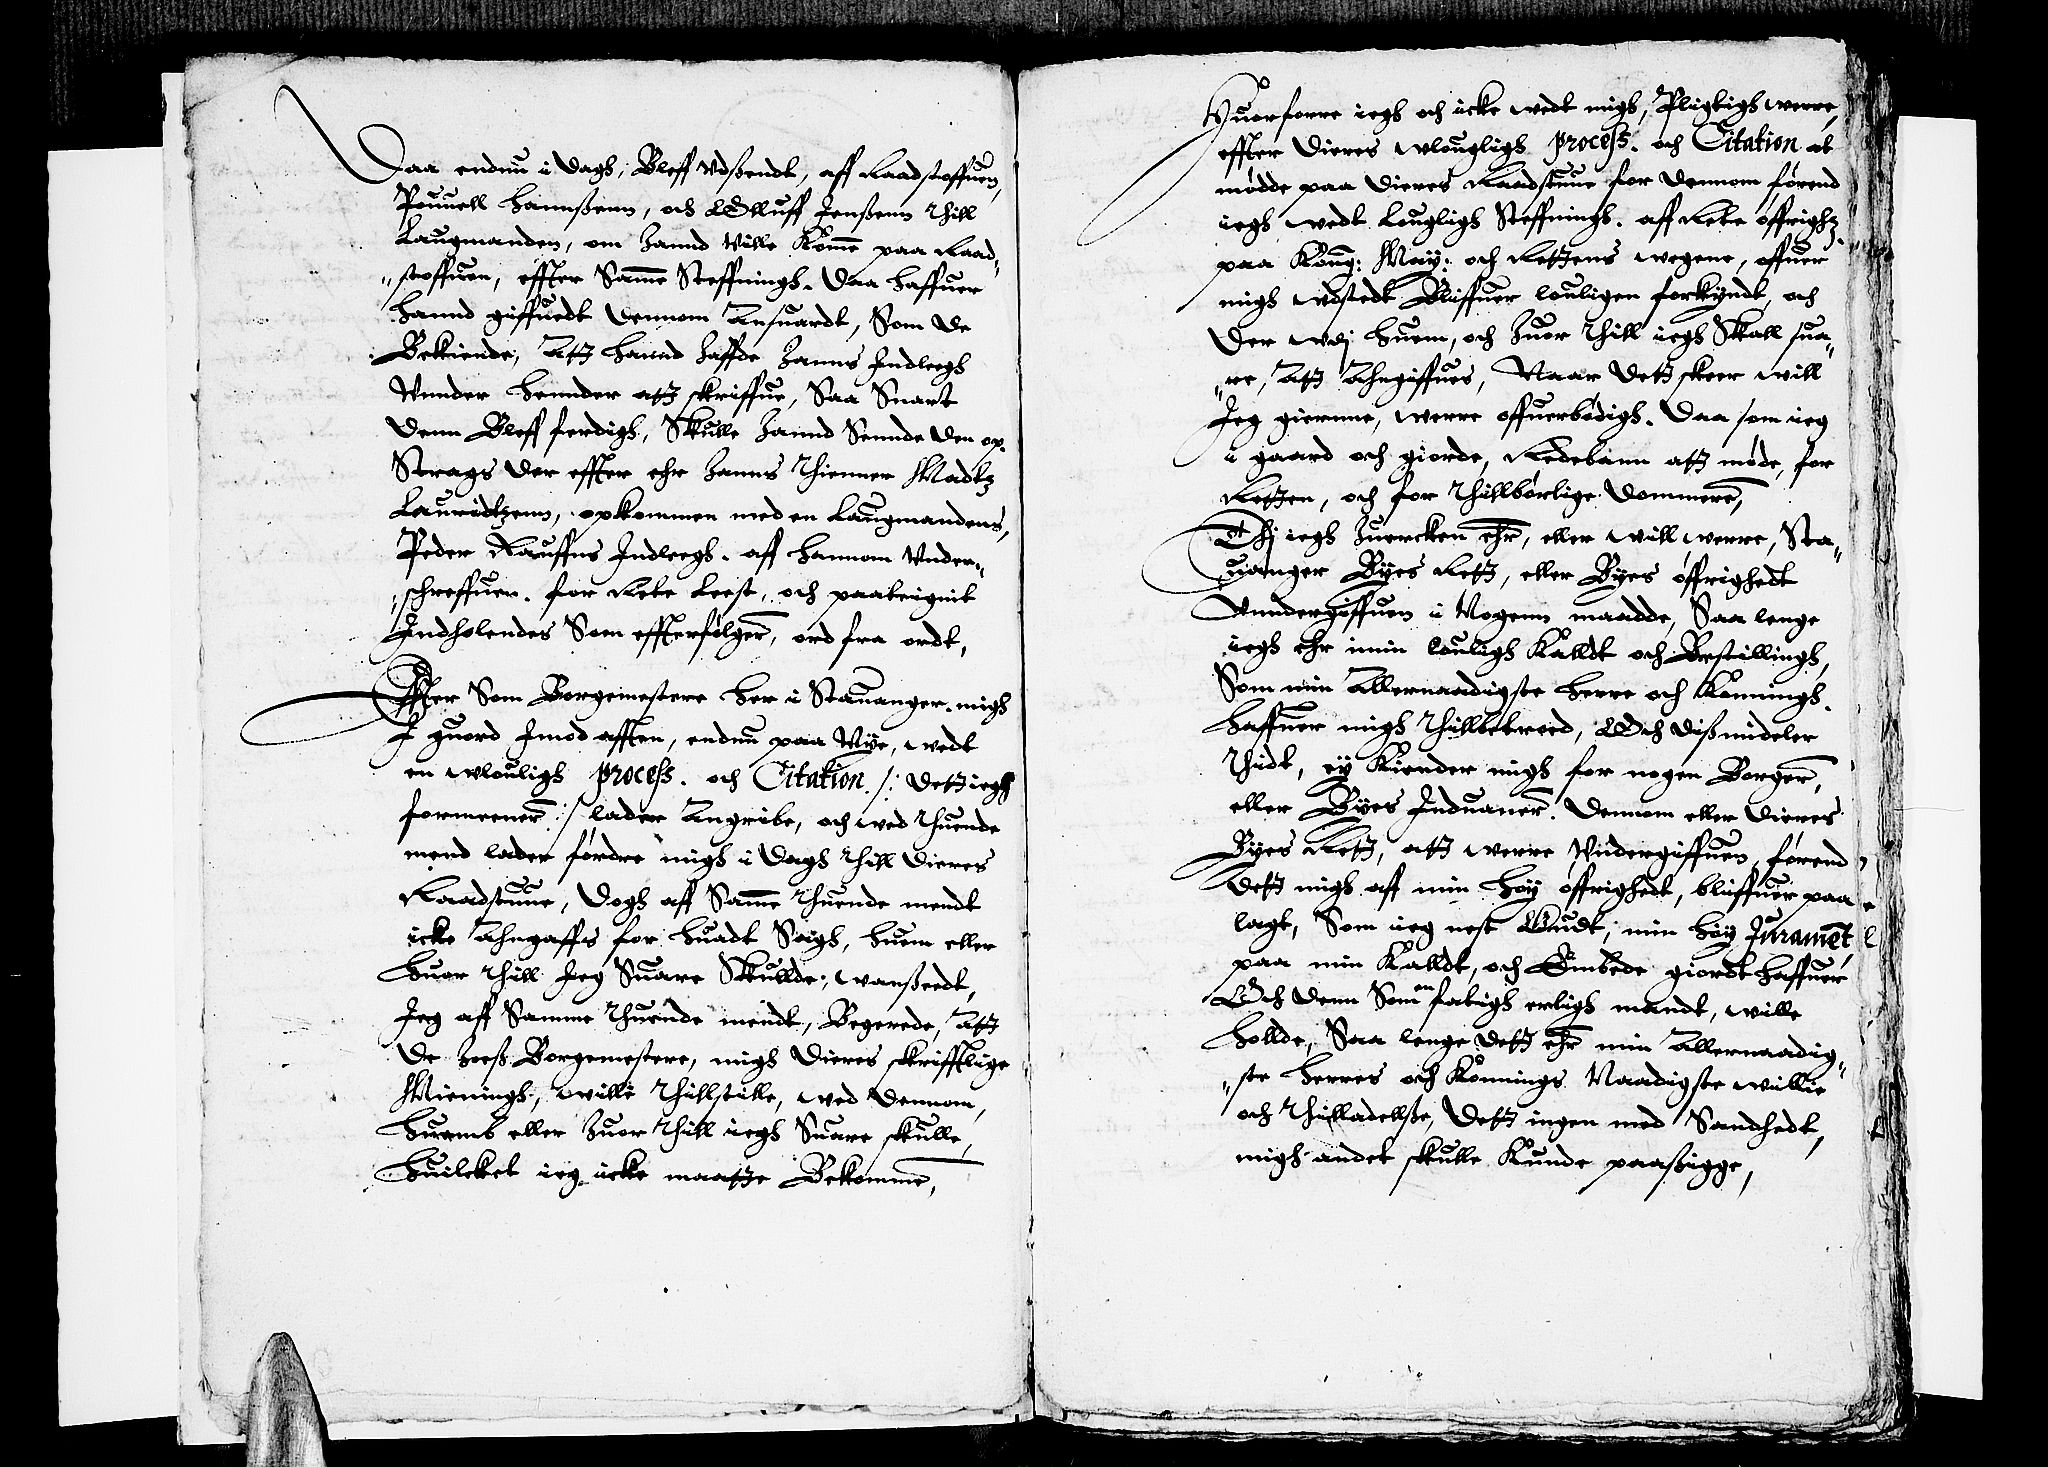 Daa endnu i Dagh, Bleff Udßendt, aff Raadstoffuen,
Pouuell Hannßenn, och Olluff Jenßenn thill
Laugmanden, om hannd Ville Komme paa Raad,,
,,stoffuen, effter Samme Steffningh. Daa haffuer
hannd giffuedt dennom Ansuardt, Som de
Bekiende, Att hannd haffde hanns Indlegh
Vnnder hennder att skriffue, Saa Snart
denn Bleff ferdigh, Skulle hannd Sennde den op.
Strags der effter ehr hanns thienner Madtz
Lauridtzenn, opkommen med en Laugmandens,
Peder Rauffns Indlegh. aff hannom Vnder,,
,,schreffuen. for Rette Leest, och paateignit
Indholendes Som effterfølger, ord fra ordt,
Effter Som Borgemestere her i Stauanger. migh
I guord Imod afften, endnu paa Nye, wedt
en wlouligh process. och Citation /: dett iegh
formeener :/ lader Angribe, och wed thuende
mend lader fordre migh i Dagh thill dieres
Raadstuue, dogh aff Samme thuende mendt
icke Ahngaffs for huadt Sagh, huem eller
huor thill Jeg Suare Skullde, wanßeedt,
Jeg aff Samme thuende mendt, Begerede, Att
de hoeß Borgemestere, migh dieres skrifftlige
Mieningh, wille thillstille, wed dennom,
huemb eller huor thill iegh Suare skulle,
huilcket ieg icke maatte Bekomme,
Huorforre iegh och icke wedt migh, Pligtigh werre,
effter dieres wlougligh process. och Citation at
mødde paa dieres Raadstuue for dennom førend
iegh wedt lougligh Steffningh. aff Rette øffrighz
paa Kong: May: och Rettens wegene, offuer
migh wdstedt Bliffuer louligen forkyndt, och
der wdj huem, och huor thill iegh Skall sua,,
,,re, Att Ahngiffues, Naar dett skeer will
Jeg gierenne, werre offuerbødigh. Daa som ieg
i gaard och giorde, Redebonn att møde, for
Retten, och for thillbørlige dommere,
Thj iegh huercken ehr, eller will werre, Sta,,
,,uanger Byes Rett, eller Byes øffrighedt
Vnndergiffuen i Nogenn maadde, Saa lenge
iegh ehr i min louligh Kalldt och Bestillingh,
Som min Allernaadigste herre och Konningh.
haffuer migh thillbetroed, Och dißmideler
thidt, ey Kiender migh for nogen Borger,
eller Byes Induaner. dennom eller dieres
Byes Rett, att werre Vndergiffuen, førend
dett migh aff min høy øffrighedt, bliffuer paa
lagt, Som ieg nest Gudt, min høy Jurament,
paa min Kalldt, och Embede giordt haffuer
Och denn Som en fattigh erligh mandt, wille
hollde, Saa lenge dett ehr min Allernaadig,,
,,ste herres och Konnings Naadigste willie
och thilladellße, dett ingen med Sandhedt,
migh andet skulle Kunde paaßigge,